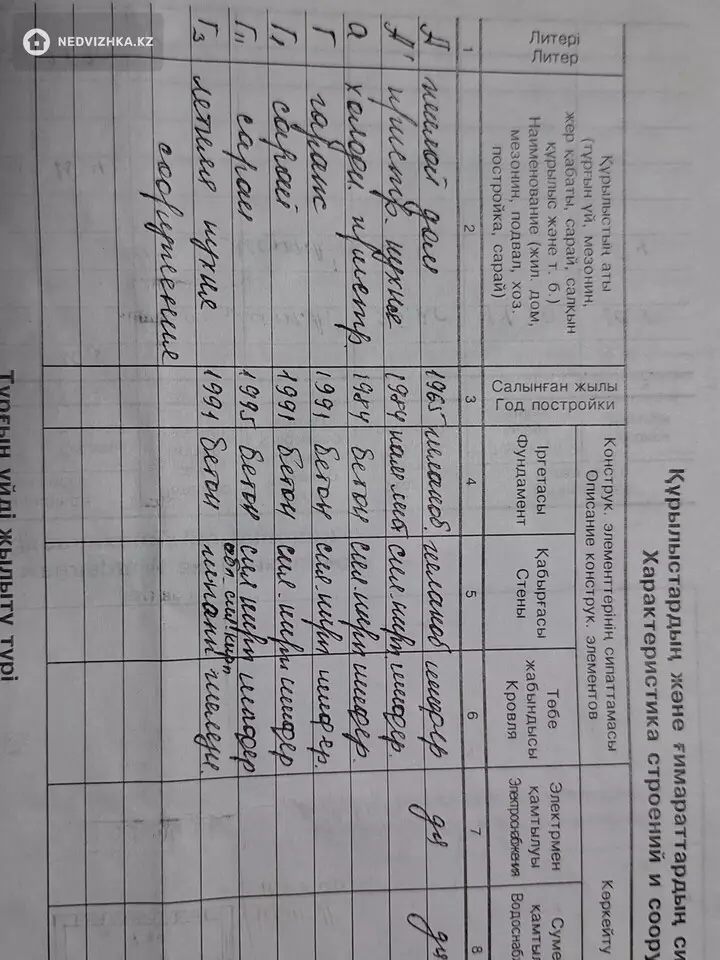 NEDVIZHKA.KZ
Құрылыстардың және ғимараттардың си
Характеристика строений и соору
Литері
Литер
Құрылыстың аты
(тұрғын үй, мезонин,
жер қабаты, сарай, салқын
құрылыс және т. б.)
Наименование (жил. дом,
мезонин, подвал, хоз.
постройка, сарай)
Салынған жылы
Год постройки
Конструк. элементтерінің сипаттамасы
Описание конструк. элементов
Іргетасы
Фундамент
Қабырғасы
Стены
Төбе
жабындысы
Кровля
Көркейту
Электрмен
қамтылуы
Электроснабжения
Суме
қамтыл
Водоснаб
1 2 3 4 5 6 7 8
А жилой дом 1965 шлакоб шлакоб шифер да да
А' пристр. кухня 1984 сил.кирп. шифер.
а холодн. пристр. 1984 бетон сил.кирп. шифер.
Г гараж 1991 бетон сил.кирп шифер.
Г₁ сарай 1991 бетон сил.кирп шифер
Г₁₁ сарай 1995 бетон сил кирп шифер
обл. сил. кирп
Г₃ летняя кухня 1991 бетон
сооружения
Тұрғын үйді жылыту түрі